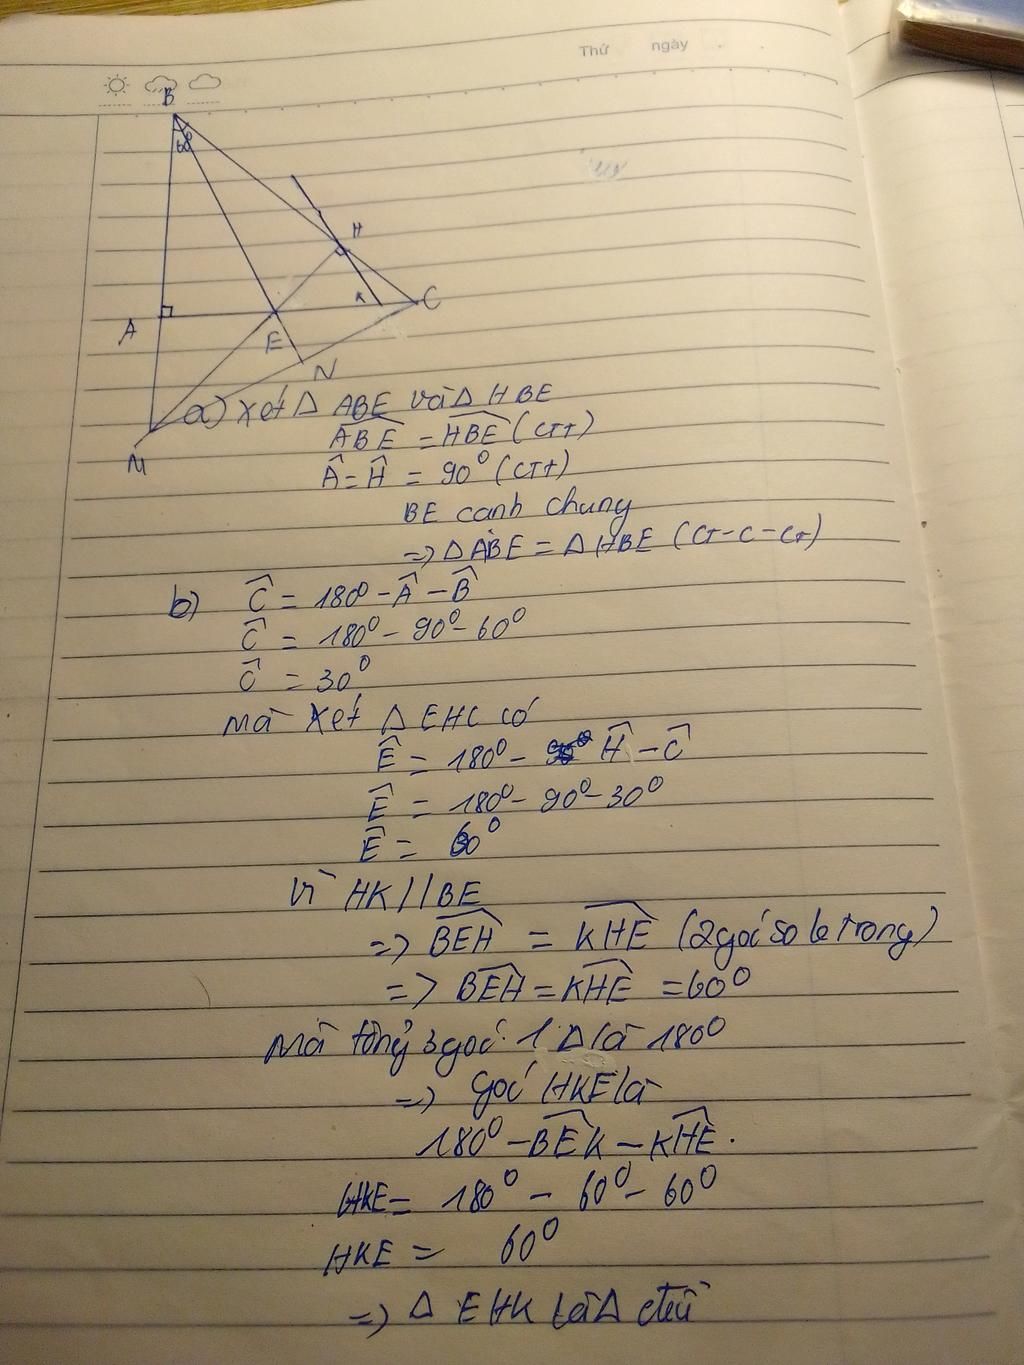 Thứ ngày
B
60⁰
H
A
E
K
C
N
M
a) Xét Δ ABE và Δ HBE
ABE = HBE (CTT)
Â = Ĥ = 90⁰ (CTT)
BE cạnh chung
=> Δ ABE = Δ HBE (CT-C-CT)
b) Ĉ = 180⁰ - Â - B̂
Ĉ = 180⁰ - 90⁰ - 60⁰
Ĉ = 30⁰
Mà Xét Δ EHC có
Ê = 180⁰ - Ĥ - Ĉ
Ê = 180⁰ - 90⁰ - 30⁰
Ê = 60⁰
Vì HK // BE
=> BEH = KHE (2 góc so le trong)
=> BEH = KHE = 60⁰
Mà tổng 3 góc 1 Δ là 180⁰
=> góc HKE là
180⁰ - BEK - KHE.
HKE = 180⁰ - 60⁰ - 60⁰
HKE = 60⁰
=> Δ EHK là Δ đều